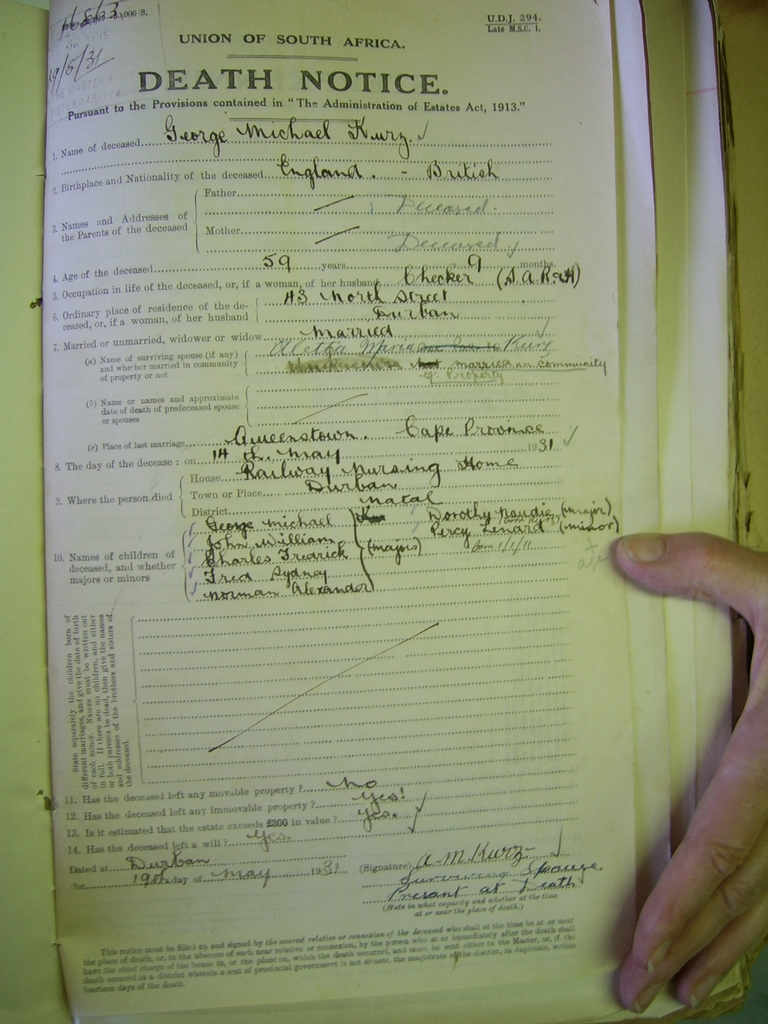 11863
U.D.J. 294.
Late M.S.C. 1.
19/5/31
UNION OF SOUTH AFRICA.
DEATH NOTICE.
Pursuant to the Provisions contained in "The Administration of Estates Act, 1913."
1. Name of deceased George Michael Kurz.
2. Birthplace and Nationality of the deceased England. - British
3. Names and Addresses of the Parents of the deceased
Father Deceased.
Mother Deceased
4. Age of the deceased 59 years 9 months
5. Occupation in life of the deceased, or, if a woman, of her husband Checker (S.A.R&H)
6. Ordinary place of residence of the deceased, or, if a woman, of her husband
43 North Street
Durban
7. Married or unmarried, widower or widow married
(a) Name of surviving spouse (if any) and whether married in community of property or not
Aletha Kurz
married in community
of Property
(b) Name or names and approximate date of death of predeceased spouse or spouses
(c) Place of last marriage Queenstown. Cape Province
8. The day of the decease: on 14th May 1931
9. Where the person died
House Railway Nursing Home
Town or Place Durban
District Natal
10. Names of children of deceased, and whether majors or minors
George Michael
John William
Charles Fredrick (majors)
Fred Sydney
Norman Alexander
Dorothy Naudie (major)
Percy Lenard (minor)
born 1/1/11
State separately the children born of different marriages, and give the date of birth of each minor. Names must be written out in full. If there are no children, and either or both parents be dead, then give the names and addresses of the brothers and sisters of the deceased.
11. Has the deceased left any movable property? No
12. Has the deceased left any immovable property? Yes!
13. Is it estimated that the estate exceeds £300 in value? Yes.
14. Has the deceased left a will? Yes.
Dated at Durban
the 19th day of May 1931
(Signature) A. M. Kurz
Surviving Spouse
Presant at Death
(State in what capacity and whether at the time
at or near the place of death.)
This notice must be filled up and signed by the nearest relative or connection of the deceased who shall at the time be at or near
the place of death, or, in the absence of such near relative or connexion, by the person who at or immediately after the death shall
have the chief charge of the house in, or the place on, which the death occurred, and must be sent either to the Master, or, if the
fourteen days of the death.